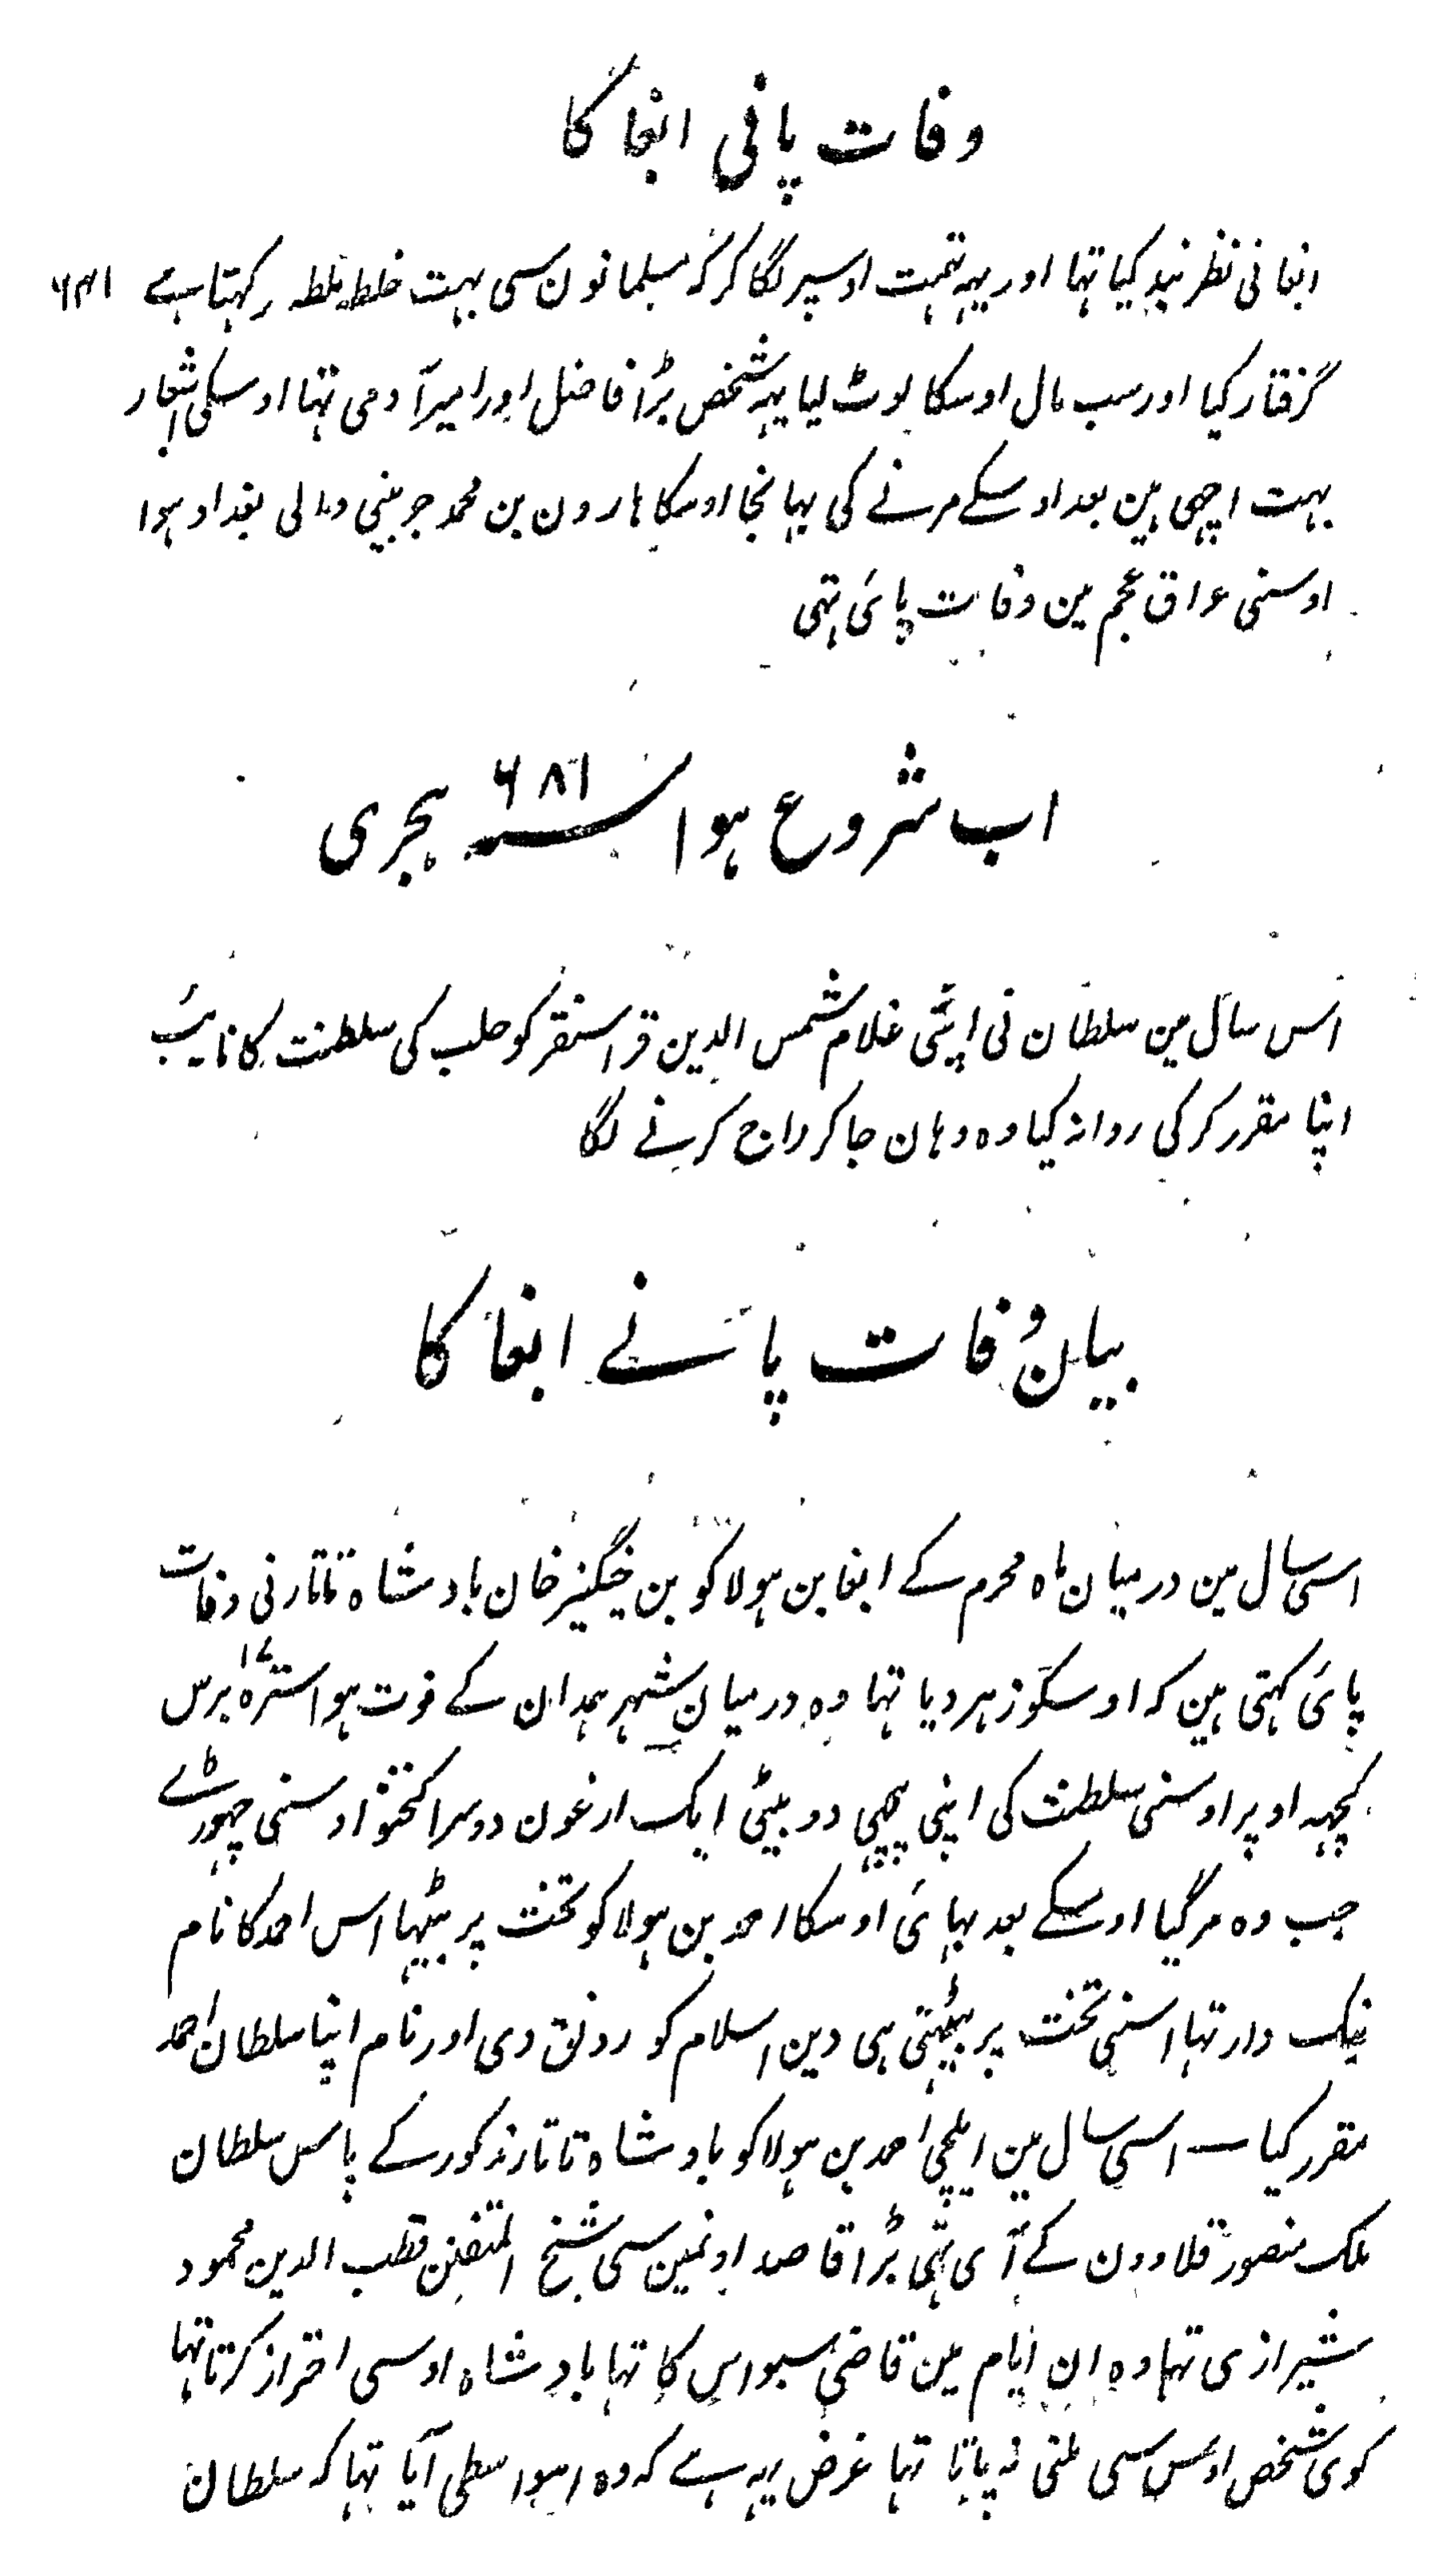 وفات پانی ابغا کا
ابغا نی نظر بند کیا تہا اور یہہ تہمت اوسپر لگا کر کہ مسلمانون سی بہت خلطہ ملطہ رکہتا ہے ۶۳۱
گرفتار کیا اور سب مال اوسکا لوٹ لیا یہہ شخص بڑا فاضل اور امیر آدمی تہا اوسکی اشعار
بہت اچہی ہین بعد اوسکے مرنے کی بہانجا اوسکا ہارون بن محمد جوینی والی بغداد ہوا
اوسنی عراق عجم مین وفات پائی تہی
اب شروع ہوا سنہ ۶۸۱ ہجری
اس سال مین سلطان نی اپنی غلام شمس الدین قراسنقر کو حلب کی سلطنت کا نایب
اپنا مقرر کر کی روانہ کیا وہ وہان جا کر راج کرنے لگا
بیان وفات پانے ابغا کا
اسی سال مین درمیان ماہ محرم کے ابغا بن ہولاکو بن خنگیز خان بادشاہ تاتار نی وفات
پائی کہتی ہین کہ اوسکو زہر دیا تہا وہ درمیان شہر ہمدان کے فوت ہوا سترہ ۱۷ برس
کچہہ اوپر اوسنی سلطنت کی اپنی پیچہی دو بیٹی ایک ارغون دوسرا کنختو اوسنی چہوڑے
جب وہ مر گیا اوسکے بعد بہائی اوسکا احمد بن ہولاکو تخت پر بیٹہا اس احمد کا نام
نیک دار تہا اسنی تخت پر بیٹہتی ہی دین اسلام کو رونق دی اور نام اپنا سلطان احمد
مقرر کیا — اسی سال مین ایلچی احمد بن ہولاکو بادشاہ تاتار مذکور کے پاس سلطان
ملک منصور قلاوون کے آی تہی بڑا قاصد اونمین سی شیخ المتفنن قطب الدین محمود
شیرازی تہا وہ ان ایام مین قاضی سیواس کا تہا بادشاہ اوسی احتراز کرتا تہا
کوی شخص اوس سی ملنی نہ پاتا تہا غرض یہہ ہے کہ وہ اسواسطی آیا تہا کہ سلطان